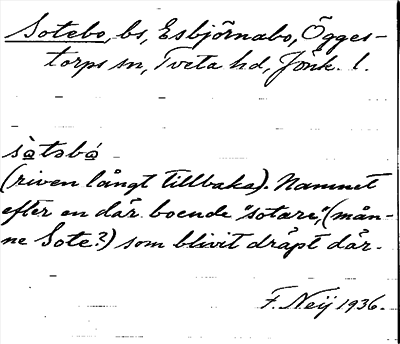 Sotebo, bs, Esbjörnabo, Ögges-
torps sn, Tveta hd, Jönk. l.
sàtsbá
(riven långt tillbaka). Namnet
efter en där boende "sotare", (mån-
ne Sote?) som blivit dräpt där.
F. Neij 1936.